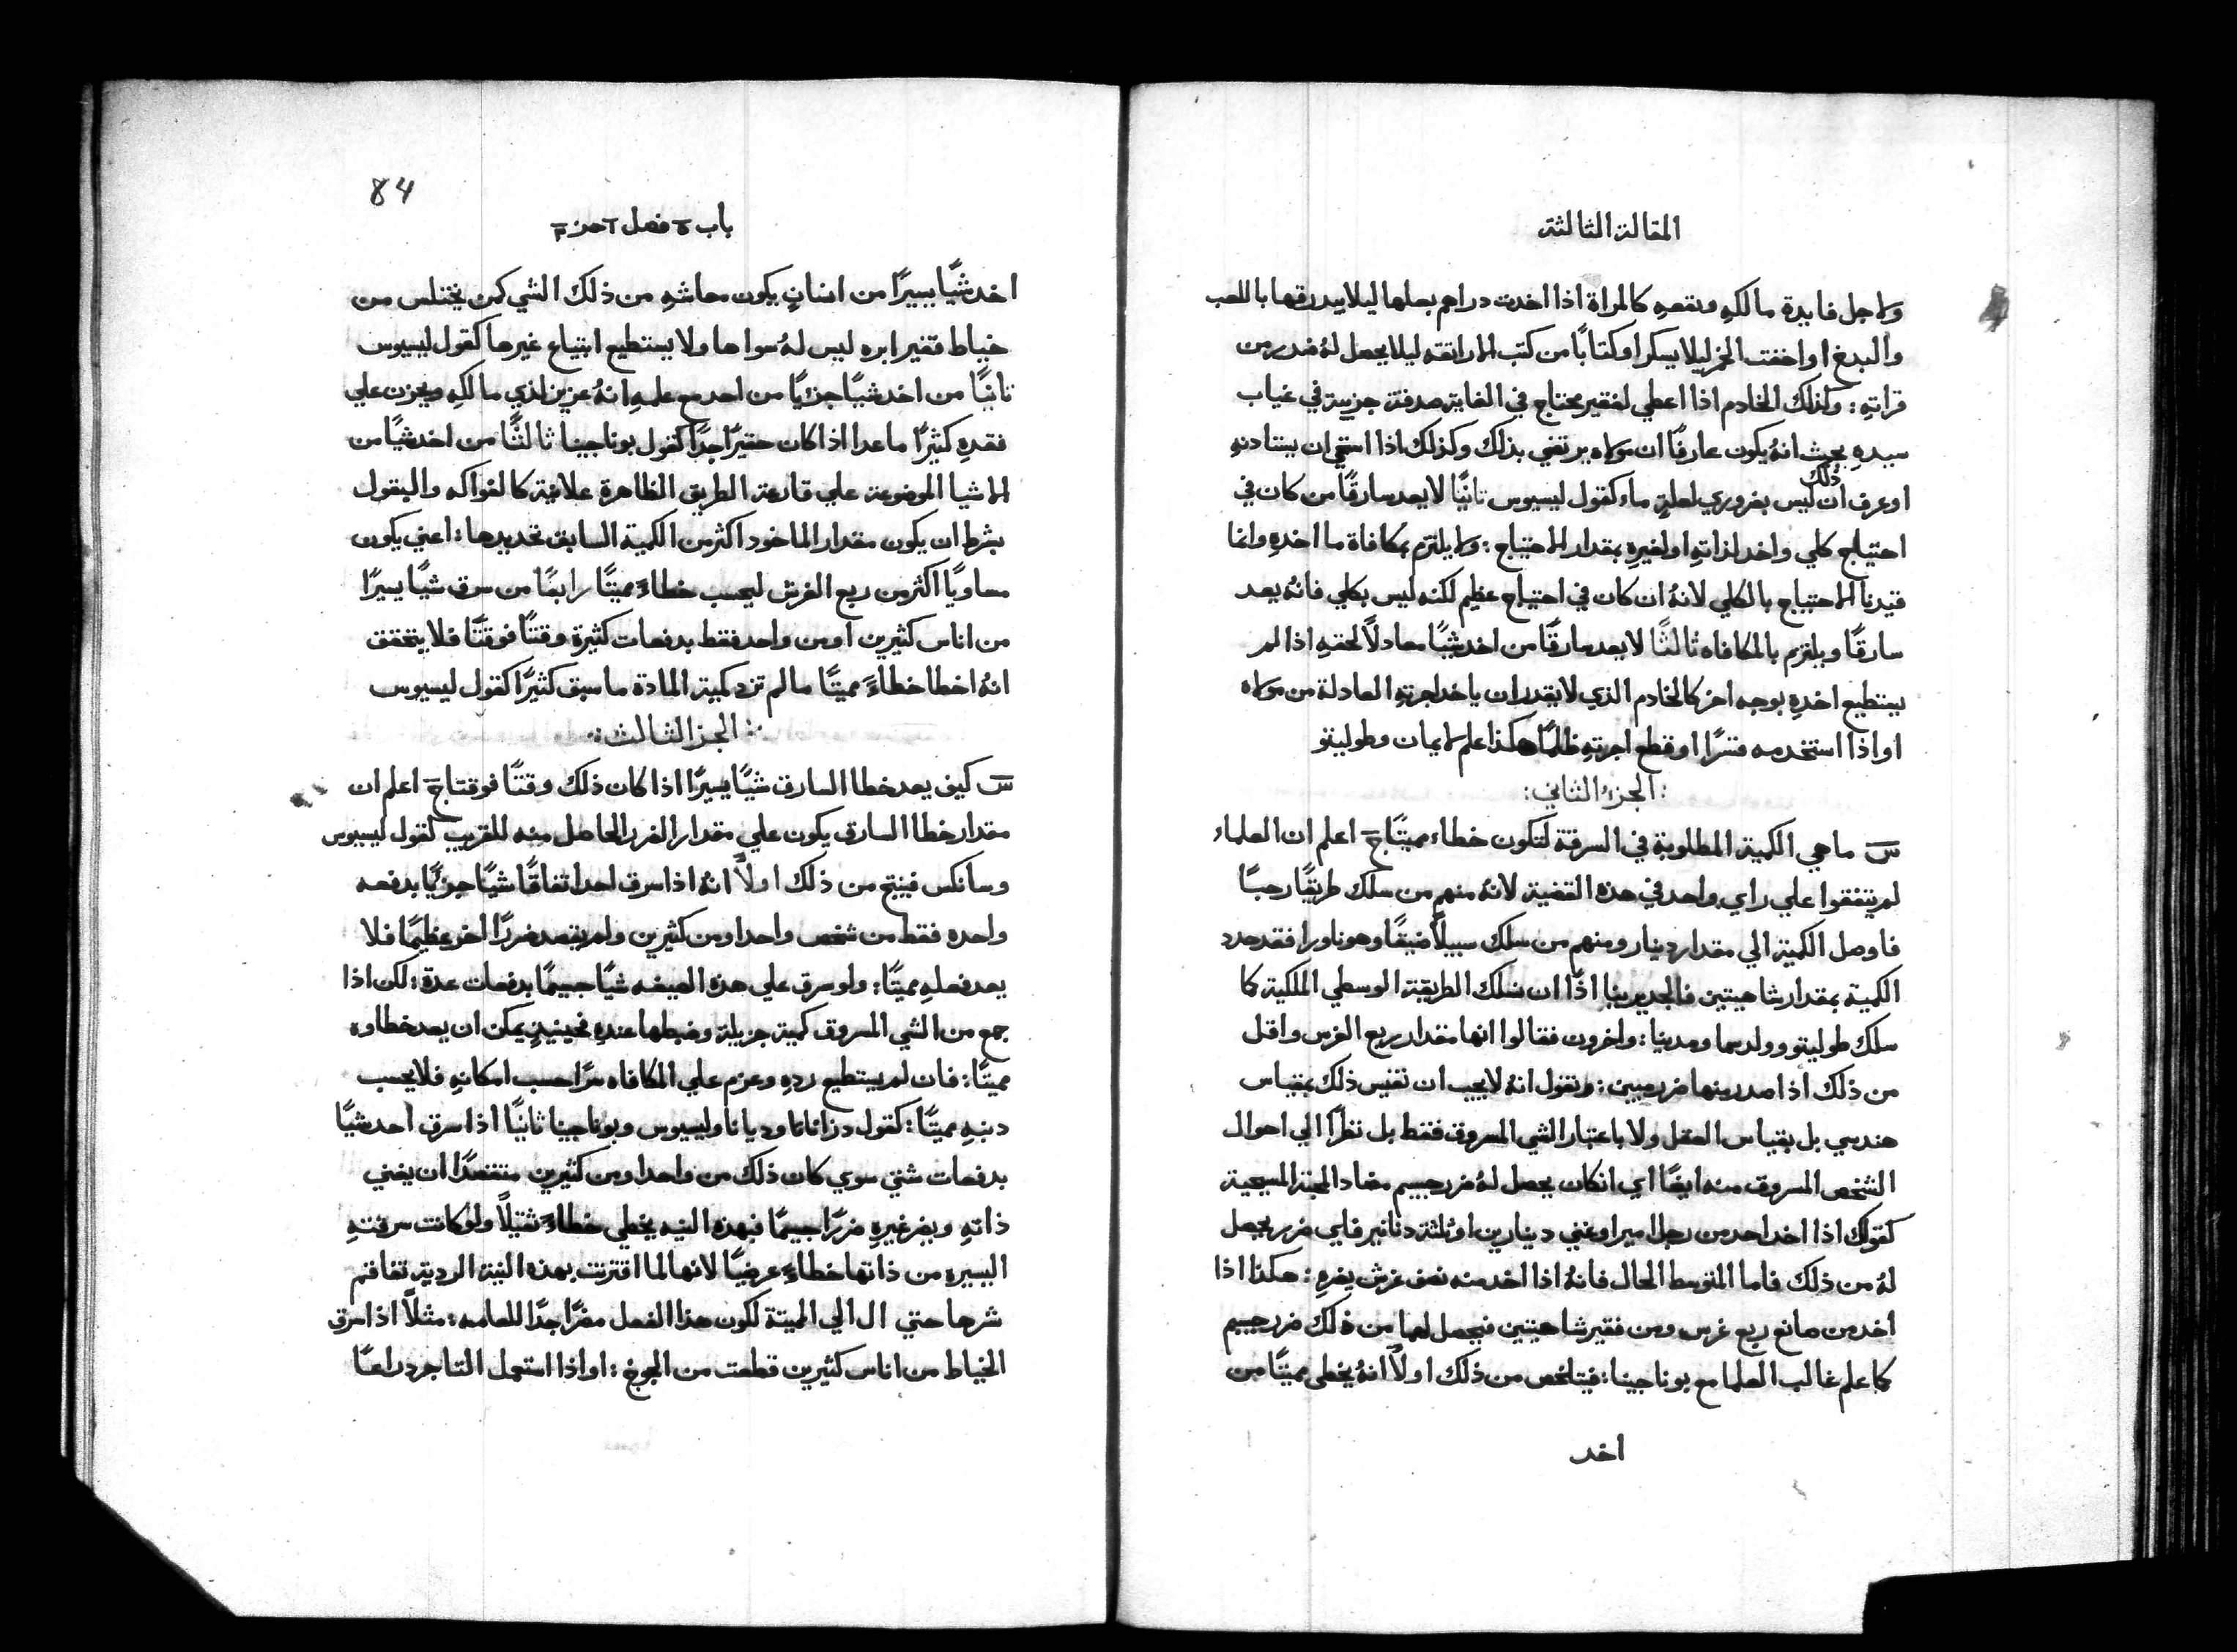 المقالة الثالثة
ولاجل فايدة مالكه ونفعهِ كالمراة اذا اخدت دراهم بعلها ليلا يبدرقها باللعب
والبدخ او اخفت الخمر ليلا يسكر او كتابًا من كتب الاراتقه ليلا يحصل لهُ ضرر من
قراتهِ: وكذلك الخادم اذا اعطي لفقير محتاج في الغاية صدقة جزيية في غياب
سيدهِ بحيث انهُ يكون عارفًا ان مولاه يرتضي بذلك وكذلك اذا استحي ان يستادنهِ
او عرف ان ذلك ليس بضروري لعلةٍ ماء كقول ليسيوس ثانيًا لا يعد سارقًا من كان في
احتياج كلي واخد لذاتهِ او لغيرهِ بمقدار الاحتياج: ولا يلتزم بمكافاة ما اخدهِ وانما
قيدنا الاحتياج بالكلي لانهُ ان كان في احتياج عظيم لكنه ليس بكلي فانهُ يعد
سارقًا ويلتزم بالمكافاه ثالثًا لا يعد سارقًا من اخد شيًا معادلاً لحقهِ اذا لم
يستطيع اخدهِ بوجه اخر كالخادم الذي لا يقدر ان ياخد اجرتهِ العادلة من مولاه
او اذا استخدمه قسرًا او قطع اجرتهِ ظلمًا هكذا علم لايمان وطوليتو
:الجزء الثاني:
سَ ماهي الكمية المطلوبة في السرقة لتكون خطاء مميتًا جَ اعلم ان العلماء
لم يتفقوا علي راي واحد في هذه القضية لانهُ منهم من سلك طريقًا رحبًا
فاوصل الكمية الي مقدار دينار ومنهم من سلك سبيلاً ضيقًا وهو ناورا فقد حدد
الكمية بمقدار شاهيتين فالجدير بنا اذًا ان نسلك الطريقة الوسطي الملكية كما
سلك طوليتو وولدسما ومدينا: واخرون فقالوا انها مقدار ربع الغرس واقل
من ذلك اذا صدر منها ضرر مبين: ونقول انهُ لا يجب ان نقيس ذلك بمقياس
هندسي بل بقياس العقل ولا باعتبار الشي المسروق فقط بل نظرًا الي احوال
الشخص المسروق منه ايضًا اي ان كان يحصل لهُ ضرر جسيم مضاد المحبة المسيحية
كقولك اذا اخد احد من رجل امير او غني دينارين او ثلثة دنانير فاي ضرر يحصل
لهُ من ذلك فاما المتوسط الحال فانهُ اذا اخد منه نصف غرش يضرهِ: هكذا اذا
اخد من صانع ربع غرس ومن فقير شاهيتين فيحصل لهما من ذلك ضرر جسيم
كما علم غالب العلما مع بوناجينا: فيتلخص من ذلك اولاً انهُ يخطي مميتًا من
اخد
84
باب ٥ فصل ٢ جز ٣
اخد شيًا يسيرًا من انسانٍ يكون معاشهِ من ذلك الشي كمن يختلس من
خياط فقير ابره ليس لهُ سواها ولا يستطيع ابتياع غيرها كقول ليسيوس
ثانيًا من اخد شيًا جزيًا من احد مع علمهِ انهُ عزيز لذي مالكهِ ويحزن علي
فقدهِ كثيرًا ما عدا اذا كان حقيرًا جدًا كقول بوناجينا ثالثًا من اخد شيًا من
الاشيا الموضوعة علي قارعة الطريق الظاهرة علانية كالفواكه والبقول
بشرط ان يكون مقدار الماخود اكثر من الكمية السابق تحديدها: اعني يكون
مساويًا اكثر من ربع الغرش ليحسب خطاءً مميتًا رابعًا من سرق شيًا يسيرًا
من اناس كثيرين او من واحد فقط بدفعات كثيرة وقتًا فوقتًا فلا يتحقق
انهُ اخطا خطاءً مميتًا ما لم تزد كمية المادة ما سبق كثيرًا كقول ليسيوس
:الجز الثالث:
سَ كيف يعد خطا السارق شيًا يسيرًا اذا كان ذلك وقتًا فوقتا جَ اعلم ان
مقدار خطا السارق يكون علي مقدار الضرر الحاصل منه للقريب كقول ليسيوس
وسانكس فينتج من ذلك اولاً انهُ اذا سرق احد اتفاقًا شيًا جزيًا بدفعه
واحده فقط من شخص واحد او من كثيرين ولم يقصد ضررًا اخر عظيمًا فلا
يعد فعلهِ مميتًا: ولو سرق علي هذه الصيفه شيًا جسيمًا بدفعات عدة: لكن اذا
جمع من الشي المسروق كمية جزيلة وضبطها عندهِ فحينيذٍ يمكن ان يعد خطاوه
مميتًا: فان لم يستطيع ردهِ وعزم علي المكافاه سرًا حسب امكانهِ فلا يحسب
دنبهِ مميتًا: كقول دزاناتا وديانا وليسيوس وبوناجينا ثانيًا اذا سرق احد شيًا
بدفعات شتي سوي كان ذلك من واحد او من كثيرين متقصدًا ان يغني
ذاتهِ ويضر غيرهِ ضررًا جسيمًا فبهذه النيه يخطي خطاءً ثقيلاً ولو كانت سرقتهِ
اليسيره من ذاتها خطاءً عرضيًا لانها لما اقترنت بهذه النية الردية تفاقم
شرها حتي ال الي المميتة لكون هذا الفعل مضرًا جدًا للعامه: مثلاً اذا سرق
الخياط من اناس كثيرين قطعت من الجوخ: او اذا استعمل التاجر دراعًا